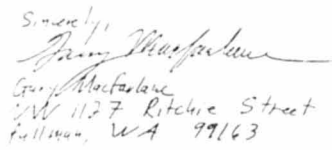 Sincerely,
Gary Macfarlane
Gary Macfarlane
NW 1127 Ritchie Street
Pullman, WA 99163